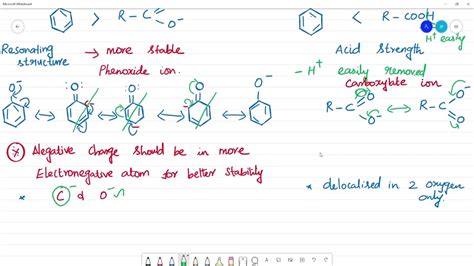 Microsoft Whiteboard
> R - C
O
O⁻
< R - COOH
H⁺ easily
Resonating → more stable
structure
Phenoxide ion.
Acid Strength
- H⁺ easily removed
Carboxylate ion
O⁻ O O O O⁻
R - C O O⁻ ↔ R - C O⁻ O
Negative Charge should be in more
Electronegative atom for better stability
* C⁻ & O⁻ ✓
* delocalised in 2 oxygen
only.